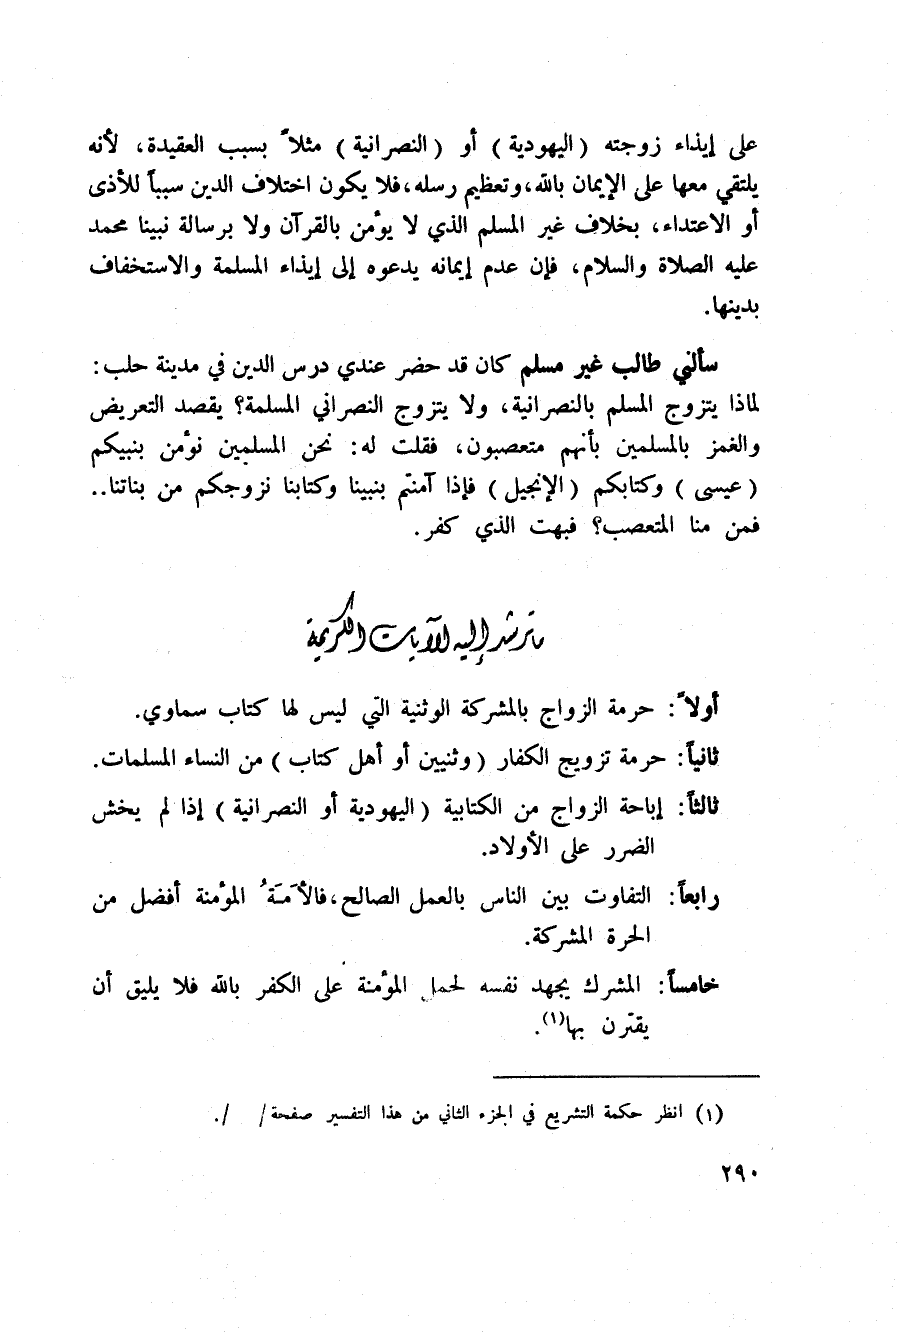 على إيذاء زوجته ( اليهودية ) أو ( النصرانية ) مثلاً بسبب العقيدة، لأنه
يلتقي معها على الإيمان بالله، وتعظيم رسله، فلا يكون اختلاف الدين سبباً للأذى
أو الاعتداء، بخلاف غير المسلم الذي لا يؤمن بالقرآن ولا برسالة نبينا محمد
عليه الصلاة والسلام، فإن عدم إيمانه يدعوه إلى إيذاء المسلمة والاستخفاف
بدينها.
سألني طالب غير مسلم كان قد حضر عندي درس الدين في مدينة حلب :
لماذا يتزوج المسلم بالنصرانية، ولا يتزوج النصراني المسلمة؟ يقصد التعريض
والغمز بالمسلمين بأنهم متعصبون، فقلت له: نحن المسلمين نؤمن بنبيكم
( عيسى ) وكتابكم ( الإنجيل ) فإذا آمنتم بنبينا وكتابنا نزوجكم من بناتنا..
فمن منا المتعصب؟ فبهت الذي كفر.
ما ترشد إليه الآيات الكريمة
أولاً: حرمة الزواج بالمشركة الوثنية التي ليس لها كتاب سماوي.
ثانياً: حرمة تزويج الكفار ( وثنيين أو أهل كتاب ) من النساء المسلمات.
ثالثاً: إباحة الزواج من الكتابية ( اليهودية أو النصرانية ) إذا لم يخش
الضرر على الأولاد.
رابعاً: التفاوت بين الناس بالعمل الصالح، فالأَمَةُ المؤمنة أفضل من
الحرة المشركة.
خامساً: المشرك يجهد نفسه لحمل المؤمنة على الكفر بالله فلا يليق أن
يقترن بها(١).
(١) انظر حكمة التشريع في الجزء الثاني من هذا التفسير صفحة / /.
٢٩٠